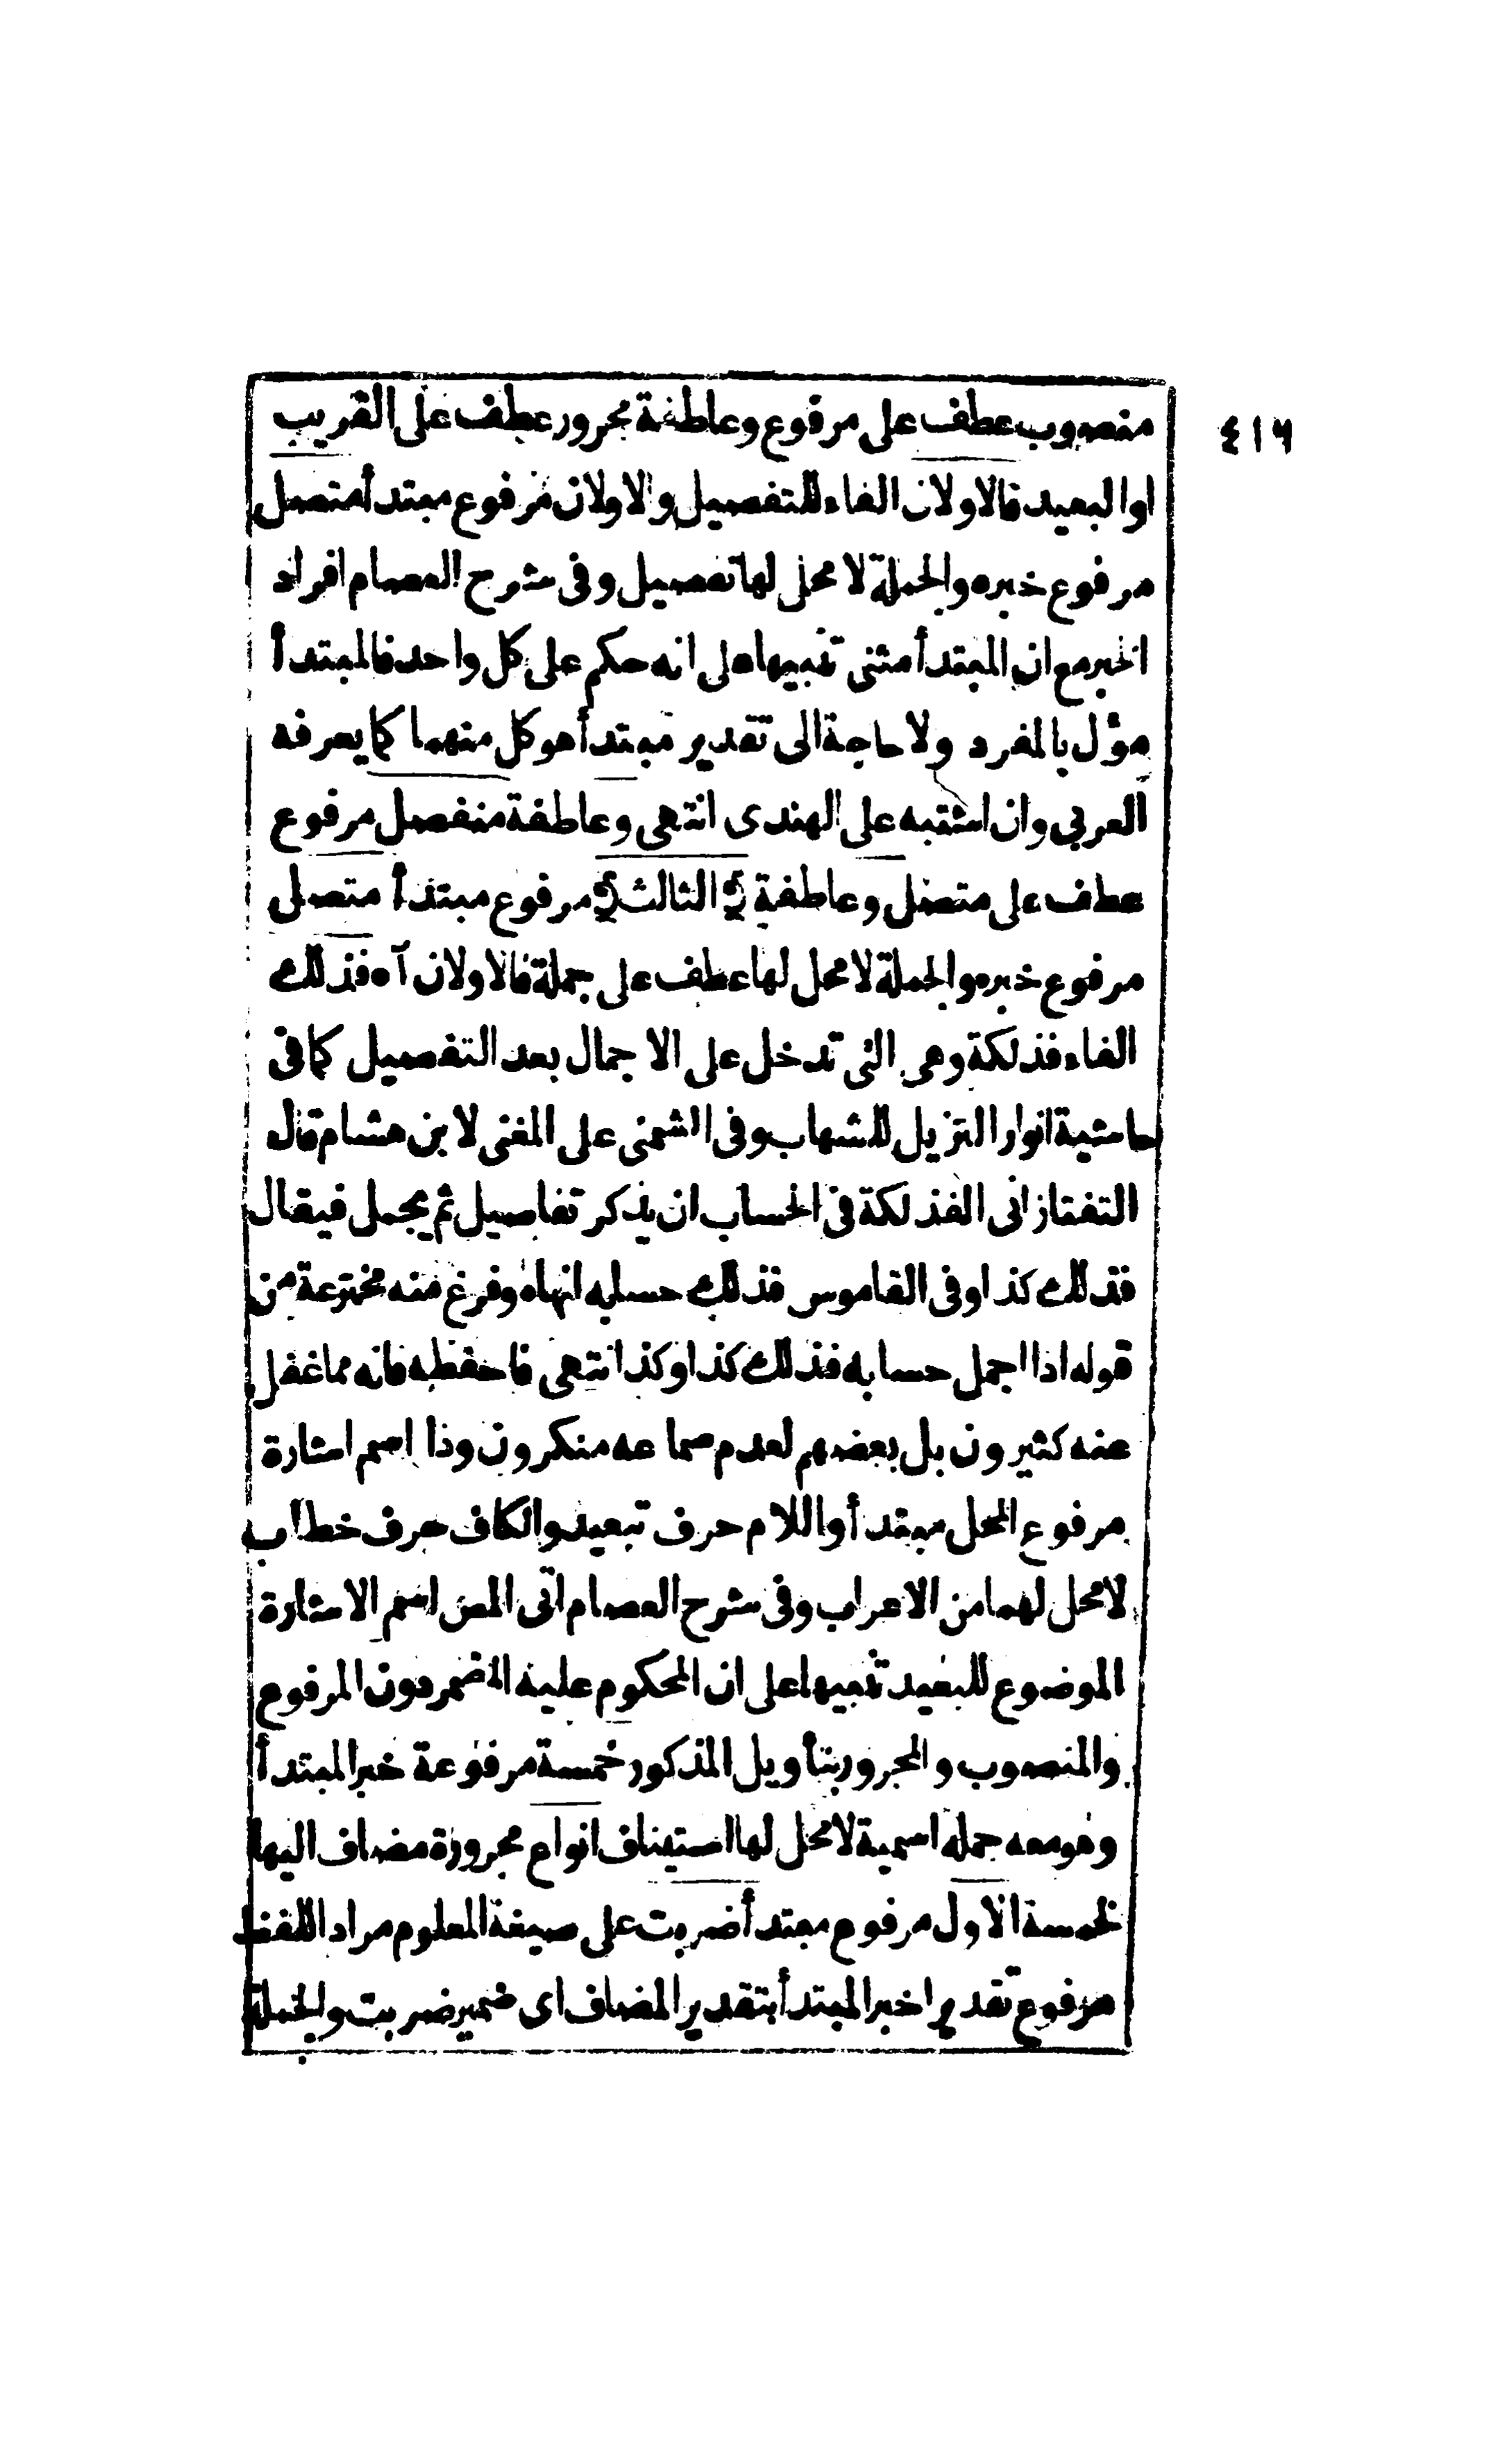 ٤١٦
منصوب عطف على مرفوع وعاطفة مجرور عطف على القريب
اوالبعيد فالاولان الفاء للتفصيل والاولان مرفوع مبتدأ متصل
مرفوع خبره والجملة لامحل لها تفصيل وفى شرح العصام افراد
الخبر مع ان المبتدأ مثنى تنبيها على انه حكم على كل واحد فالمبتدأ
مؤل بالمفرد ولا حاجة الى تقدير مبتدأ هو كل منهما كما يعرفه
العربى وان اشتبه على الهندى انتهى وعاطفة منفصل مرفوع
عطف على متصل وعاطفة و الثالث و مرفوع مبتدأ متصل
مرفوع خبره والجملة لامحل لها عطف على جملة فالاولان آه فذلك
الفاء فذلكة وهى التى تدخل على الاجمال بعد التفصيل كما فى
حاشية انوار التنزيل للشهاب وفى الشمنى على المغنى لابن هشام قال
التفتازانى الفذلكة فى الحساب ان يذكر تفاصيل ثم يجمل فيقال
فذلك كذا وفى القاموس فذلك حسابه انهاه وفرغ منه مخترعة من
قوله اذا اجمل حسابه فذلك كذا وكذا انتهى فاحفظه فانه مما غفل
عنه كثيرون بل بعضهم لعدم سماعه منكرون وذا اسم اشارة
مرفوع المحل مبتدأ واللام حرف تبعيد والكاف حرف خطاب
لامحل لهما من الاعراب وفى شرح العصام اتى المص اسم الاشارة
الموضوع للبعيد تنبيها على ان المحكوم عليه المضمر دون المرفوع
والمنصوب والمجرور بتأويل المذكور خمسة مرفوعة خبر المبتدأ
وهو معه جملة اسمية لامحل لها استيناف انواع مجرورة مضاف اليها
لخمسة الاول مرفوع مبتدأ ضربت على صيغة المعلوم مراد اللفظ
مرفوع تقديرا خبر المبتدأ بتقدير المضاف اى ضمير ضربت والجملة